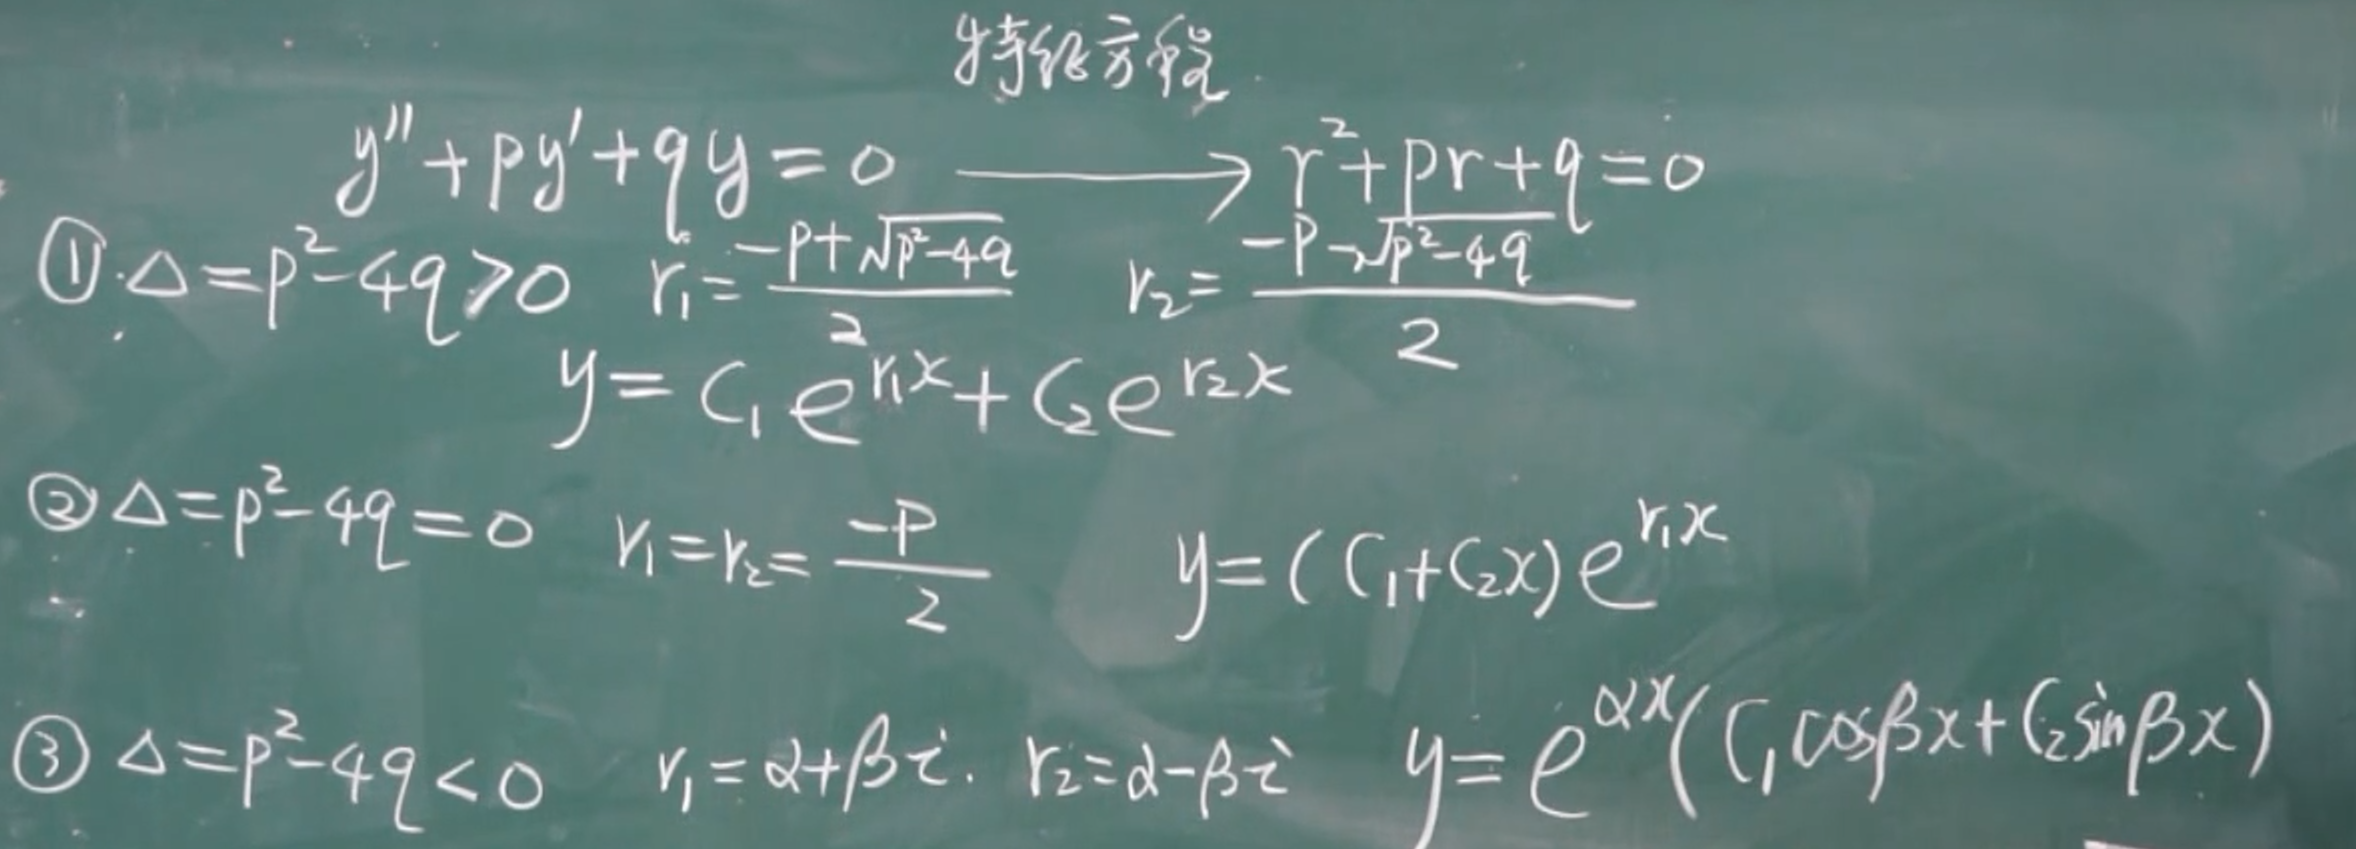 特征方程
y''+py'+qy=0 ⟶ r²+pr+q=0
① Δ=p²-4q>0 r₁=(-p+√(p²-4q))/2 r₂=(-p-√(p²-4q))/2
y=C₁e^{r₁x}+C₂e^{r₂x}
② Δ=p²-4q=0 r₁=r₂=-p/2 y=(C₁+C₂x)e^{r₁x}
③ Δ=p²-4q<0 r₁=α+βi. r₂=α-βi y=e^{αx}(C₁cosβx+C₂sinβx)